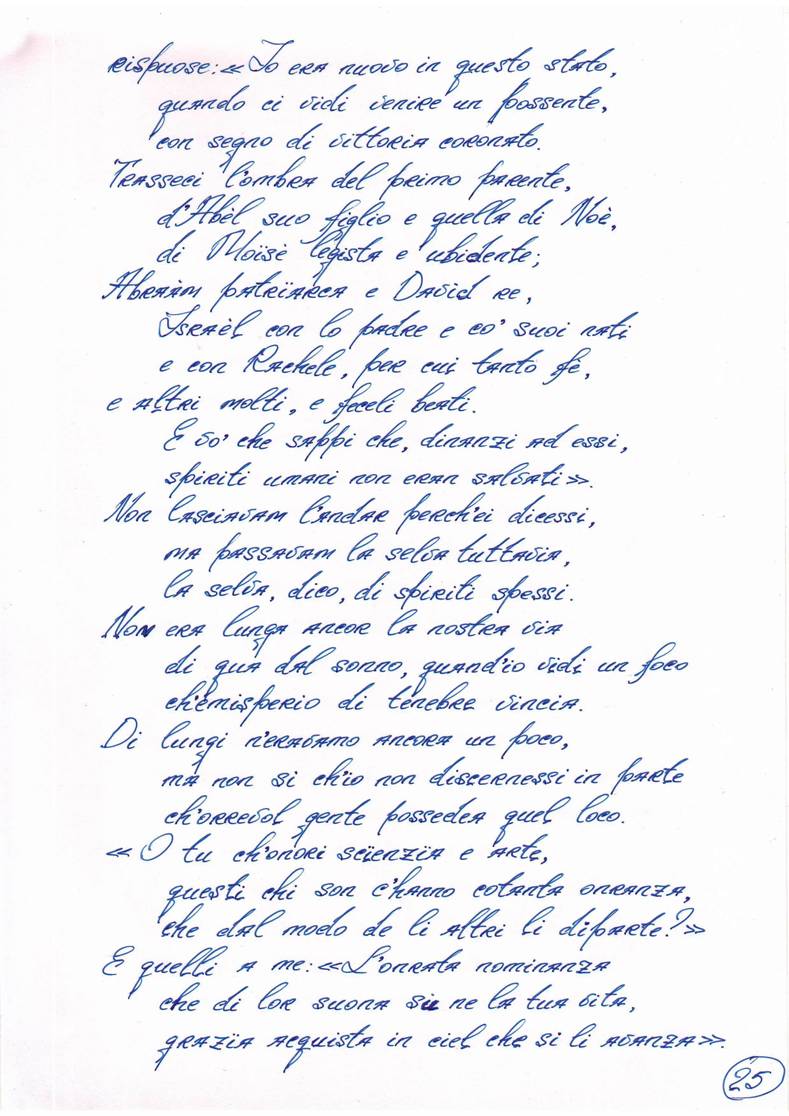 rispuose: «Io era nuovo in questo stato,
quando ci vidi venire un possente,
con segno di vittoria coronato.
Trasseci l'ombra del primo parente,
d'Abèl suo figlio e quella di Noè,
di Moïsè legista e ubidente;
Abraàm patrïarca e Davìd re,
Israèl con lo padre e co' suoi nati
e con Rachele, per cui tanto fé,
e altri molti, e feceli beati.
E vo' che sappi che, dinanzi ad essi,
spiriti umani non eran salvati».
Non lasciavam l'andar perch'ei dicessi,
ma passavam la selva tuttavia,
la selva, dico, di spiriti spessi.
Non era lunga ancor la nostra via
di qua dal sonno, quand'io vidi un foco
ch'emisperio di tenebre vincia.
Di lungi n'eravamo ancora un poco,
ma non sì ch'io non discernessi in parte
ch'orrevol gente possedea quel loco.
«O tu ch'onori scïenzïa e arte,
questi chi son c'hanno cotanta onranza,
che dal modo de li altri li diparte?»
E quelli a me: «L'onrata nominanza
che di lor suona sù ne la tua vita,
grazïa acquista in ciel che sì li avanza».
25